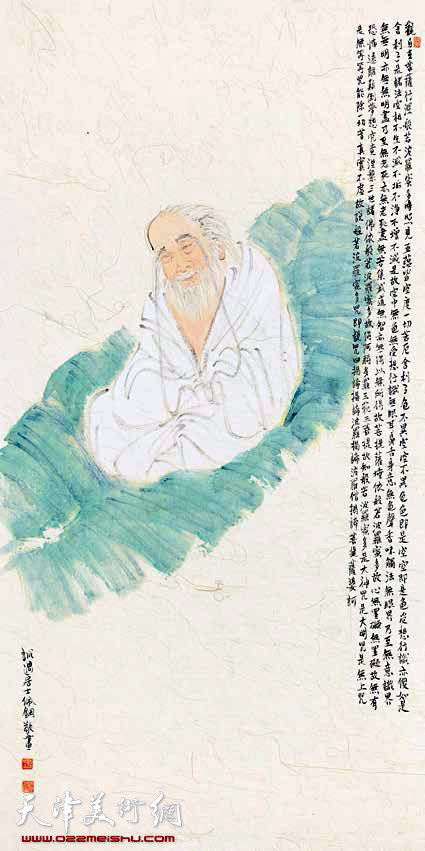 觀自在菩薩行深般若波羅蜜多時照見五蘊皆空度一切苦厄舍利子色不異空空不異色色即是空空即是色受想行識亦復如是
舍利子是諸法空相不生不滅不垢不淨不增不減是故空中無色無受想行識無眼耳鼻舌身意無色聲香味觸法無眼界乃至無意識界
無無明亦無無明盡乃至無老死亦無老死盡無苦集滅道無智亦無得以無所得故菩提薩埵依般若波羅蜜多故心無罣礙無罣礙故無有
恐怖遠離顛倒夢想究竟涅槃三世諸佛依般若波羅蜜多故得阿耨多羅三藐三菩提故知般若波羅蜜多是大神咒是大明咒是無上咒
是無等等咒能除一切苦真實不虛故說般若波羅蜜多咒即說咒曰揭諦揭諦波羅揭諦波羅僧揭諦菩提薩婆訶
居士佩鋼敬畫
天津美術網
www.022meishu.com